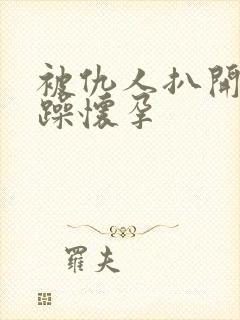 被仇人扒開
躁懷孕
羅夫